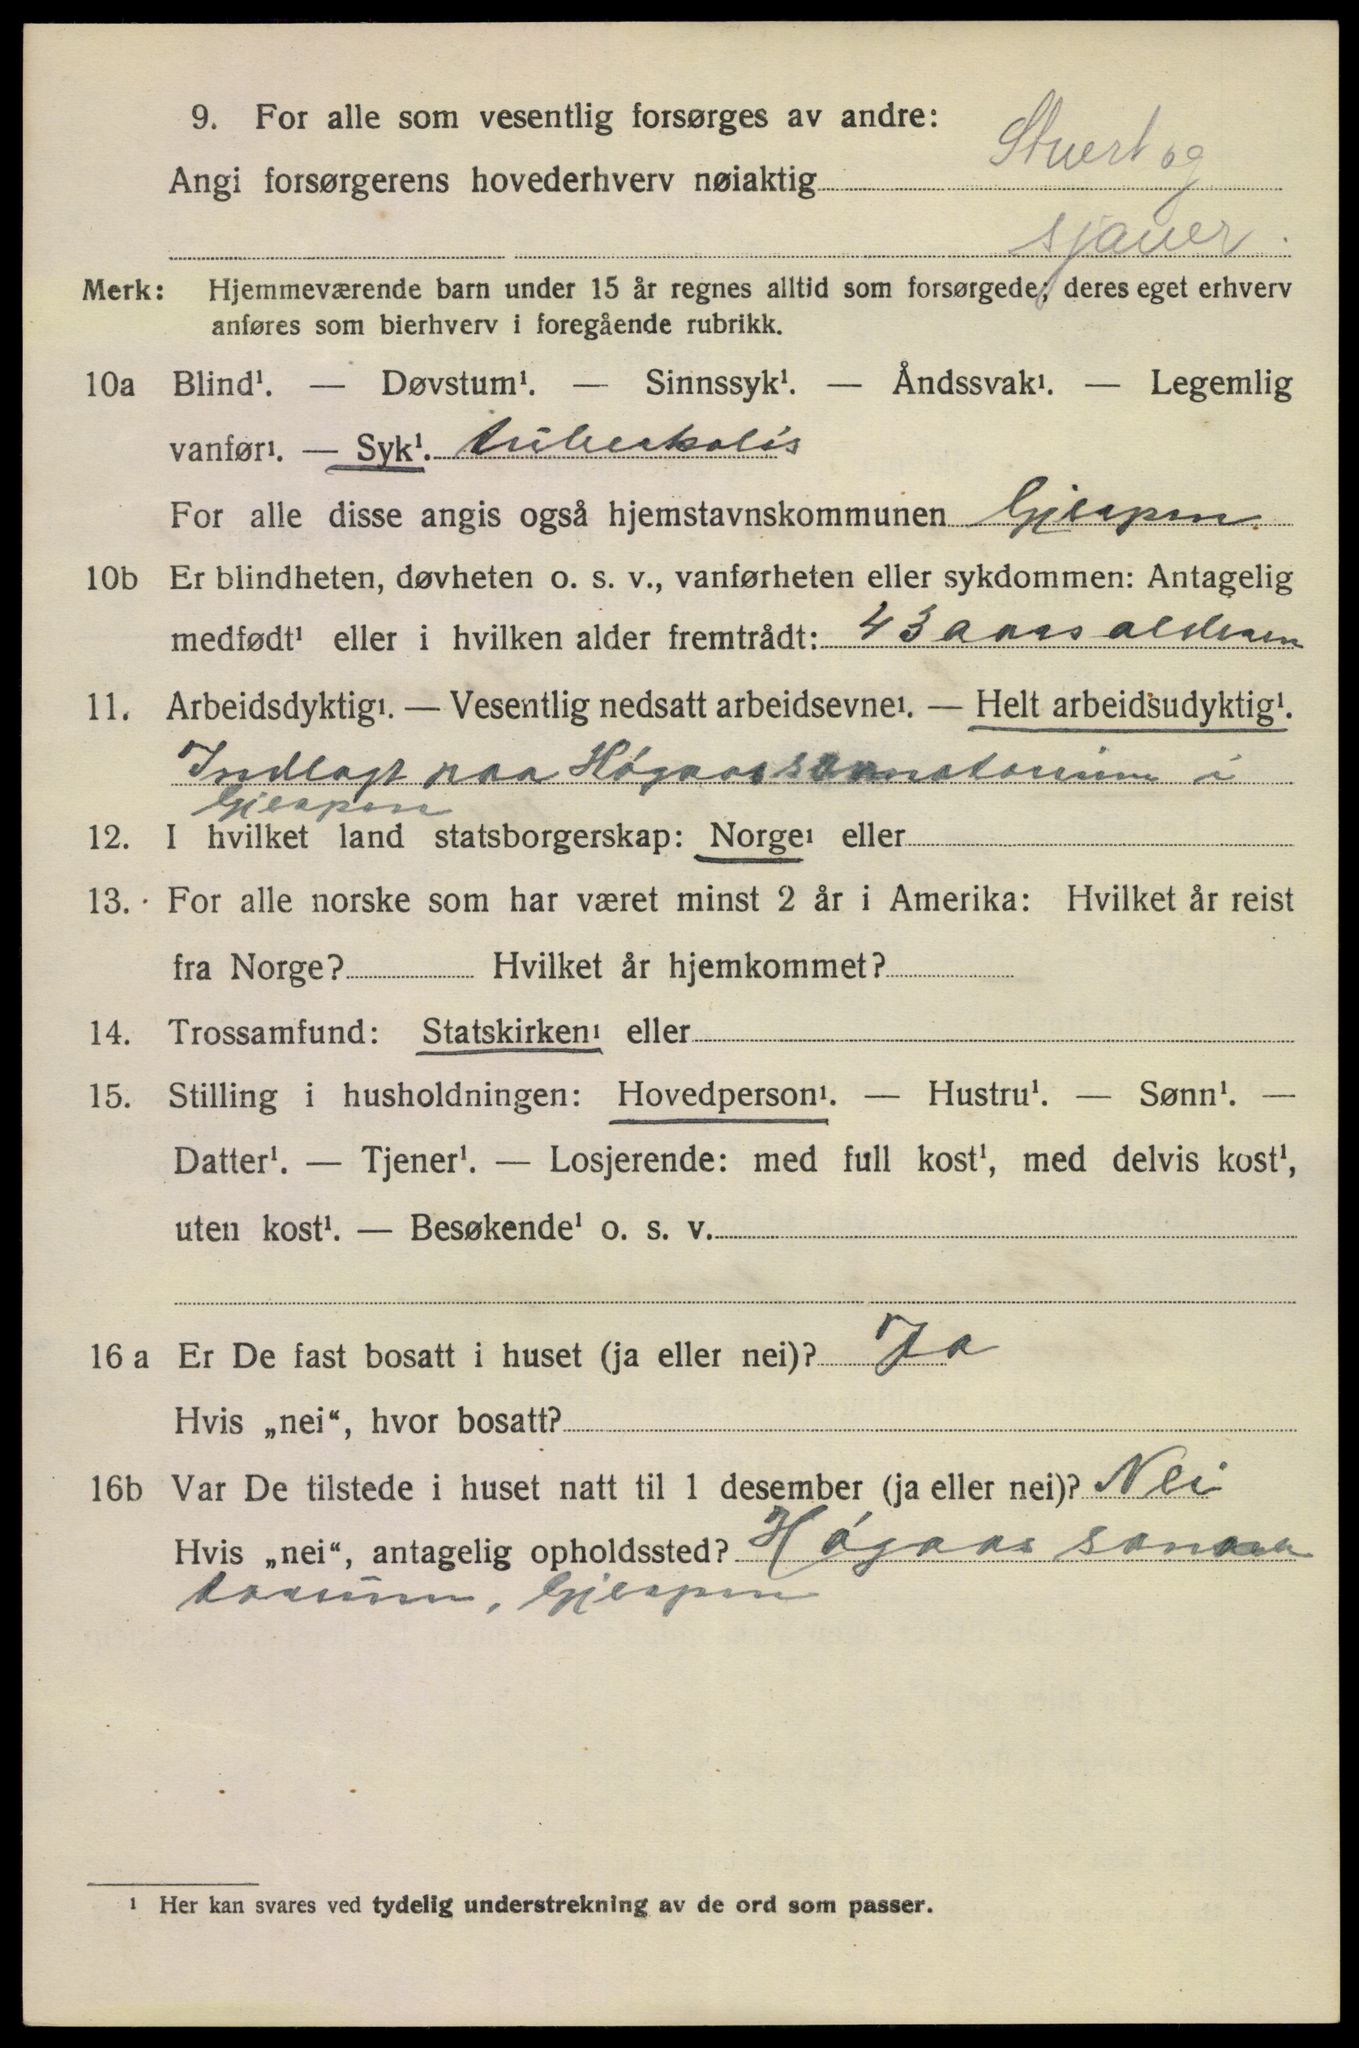 9. For alle som vesentlig forsørges av andre:
Angi forsørgerens hovederhverv nøiaktig Stuert og
sjauer.
Merk: Hjemmeværende barn under 15 år regnes alltid som forsørgede; deres eget erhverv
anføres som bierhverv i foregående rubrikk.
10a Blind¹. — Døvstum¹. — Sinnssyk¹. — Åndssvak¹. — Legemlig
vanfør¹. — Syk¹. tuberkolös
For alle disse angis også hjemstavnskommunen Gjerpen
10b Er blindheten, døvheten o. s. v., vanførheten eller sykdommen: Antagelig
medfødt¹ eller i hvilken alder fremtrådt: 43 aars alderen
11. Arbeidsdyktig¹. — Vesentlig nedsatt arbeidsevne¹. — Helt arbeidsudyktig¹.
Indlagt paa Högaas sanatorium i
Gjerpen
12. I hvilket land statsborgerskap: Norge¹ eller
13. For alle norske som har været minst 2 år i Amerika: Hvilket år reist
fra Norge? Hvilket år hjemkommet?
14. Trossamfund: Statskirken¹ eller
15. Stilling i husholdningen: Hovedperson¹. — Hustru¹. — Sønn¹. —
Datter¹. — Tjener¹. — Losjerende: med full kost¹, med delvis kost¹,
uten kost¹. — Besøkende¹ o. s. v.
16 a Er De fast bosatt i huset (ja eller nei)? Ja
Hvis „nei“, hvor bosatt?
16b Var De tilstede i huset natt til 1 desember (ja eller nei)? Nei
Hvis „nei“, antagelig opholdssted? Högaas sana
torium, Gjerpen
¹ Her kan svares ved tydelig understrekning av de ord som passer.